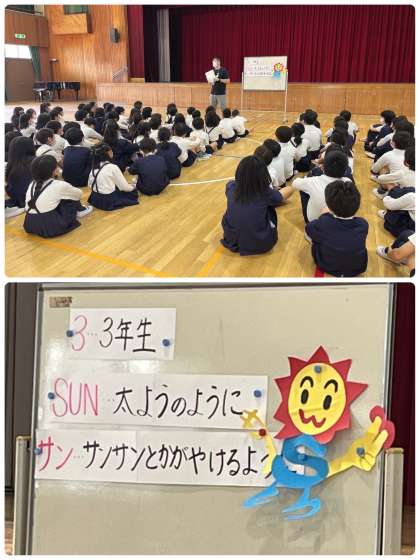 3…3年生
SUN…太ようのように
サン…サンサンとかがやけるよ
S